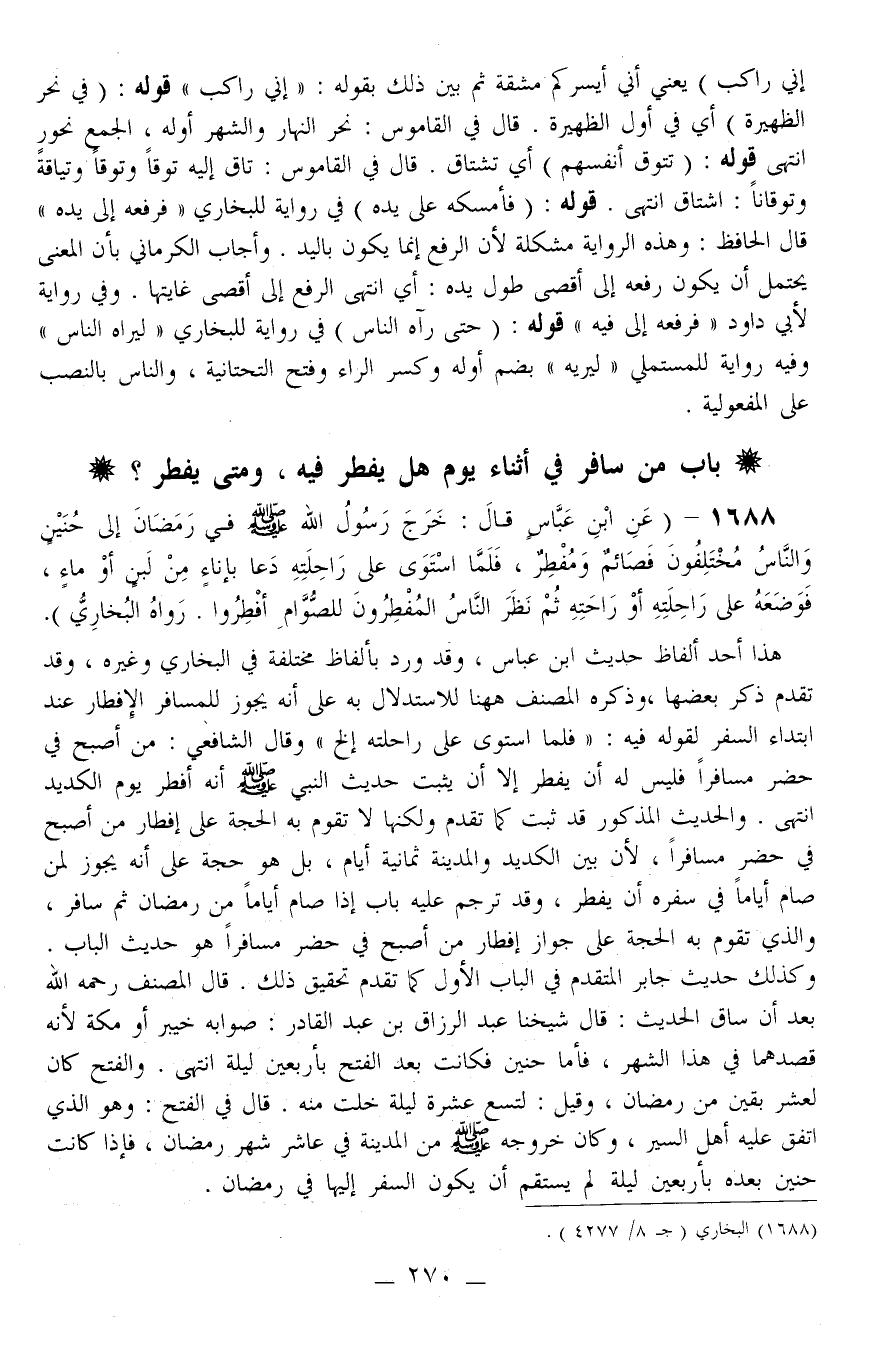 إني راكب ) يعني أني أيسركم مشقة ثم بين ذلك بقوله : « إني راكب » قوله : ( في نحر
الظهيرة ) أي في أول الظهيرة . قال في القاموس : نحر النهار والشهر أوله ، الجمع نحور
انتهى قوله : ( تتوق أنفسهم ) أي تشتاق . قال في القاموس : تاق إليه توقاً وتوقاً وتياقةً
وتوقاناً : اشتاق انتهى . قوله : ( فأمسكه على يده ) في رواية للبخاري « فرفعه إلى يده »
قال الحافظ : وهذه الرواية مشكلة لأن الرفع إنما يكون باليد . وأجاب الكرماني بأن المعنى
يحتمل أن يكون رفعه إلى أقصى طول يده : أي انتهى الرفع إلى أقصى غايتها . وفي رواية
لأبي داود « فرفعه إلى فيه » قوله : ( حتى رآه الناس ) في رواية للبخاري « ليراه الناس »
وفيه رواية للمستملي « ليريه » بضم أوله وكسر الراء وفتح التحتانية ، والناس بالنصب
على المفعولية .
باب من سافر في أثناء يوم هل يفطر فيه ، ومتى يفطر ؟
١٦٨٨ – ( عَنِ ابْنِ عَبَّاسٍ قالَ : خَرَجَ رَسُولُ الله ﷺ في رَمَضَانَ إلى حُنَيْنٍ
وَالنَّاسُ مُخْتَلِفُونَ فَصَائمٌ وَمُفْطِرٌ ، فَلَمَّا اسْتَوَى على رَاحِلَتِهِ دَعا بإناءٍ مِنْ لَبنٍ أوْ ماءٍ ،
فَوَضَعَهُ على رَاحِلَتِهِ أوْ رَاحَتِهِ ثُمْ نَظَرَ النَّاسُ المُفْطِرُونَ للصُّوَّامِ أفْطِرُوا . رَواهُ البُخارِيُّ ).
هذا أحد ألفاظ حديث ابن عباس ، وقد ورد بألفاظ مختلفة في البخاري وغيره ، وقد
تقدم ذكر بعضها ،وذكره المصنف ههنا للاستدلال به على أنه يجوز للمسافر الإفطار عند
ابتداء السفر لقوله فيه : « فلما استوى على راحلته إلخ » وقال الشافعي : من أصبح في
حضر مسافراً فليس له أن يفطر إلا أن يثبت حديث النبي ﷺ أنه أفطر يوم الكديد
انتهى . والحديث المذكور قد ثبت كما تقدم ولكنها لا تقوم به الحجة على إفطار من أصبح
في حضر مسافراً ، لأن بين الكديد والمدينة ثمانية أيام ، بل هو حجة على أنه يجوز لمن
صام أياماً في سفره أن يفطر ، وقد ترجم عليه باب إذا صام أياماً من رمضان ثم سافر ،
والذي تقوم به الحجة على جواز إفطار من أصبح في حضر مسافراً هو حديث الباب .
وكذلك حديث جابر المتقدم في الباب الأول كما تقدم تحقيق ذلك . قال المصنف رحمه الله
بعد أن ساق الحديث : قال شيخنا عبد الرزاق بن عبد القادر : صوابه خيبر أو مكة لأنه
قصدهما في هذا الشهر ، فأما حنين فكانت بعد الفتح بأربعين ليلة انتهى . والفتح كان
لعشر بقين من رمضان ، وقيل : لتسع عشرة ليلة خلت منه . قال في الفتح : وهو الذي
اتفق عليه أهل السير ، وكان خروجه ﷺ من المدينة في عاشر شهر رمضان ، فإذا كانت
حنين بعده بأربعين ليلة لم يستقم أن يكون السفر إليها في رمضان .
(١٦٨٨) البخاري ( جـ ٨/ ٤٢٧٧ ) .
— ٢٧٠ —